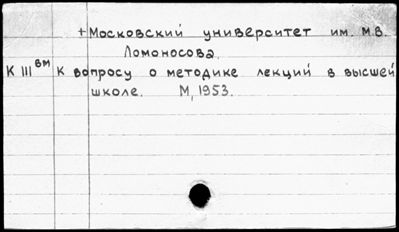 +Московский университет им. М.В.
Ломоносова.
К III вм К вопросу о методике лекций в высшей
школе. М, 1953.